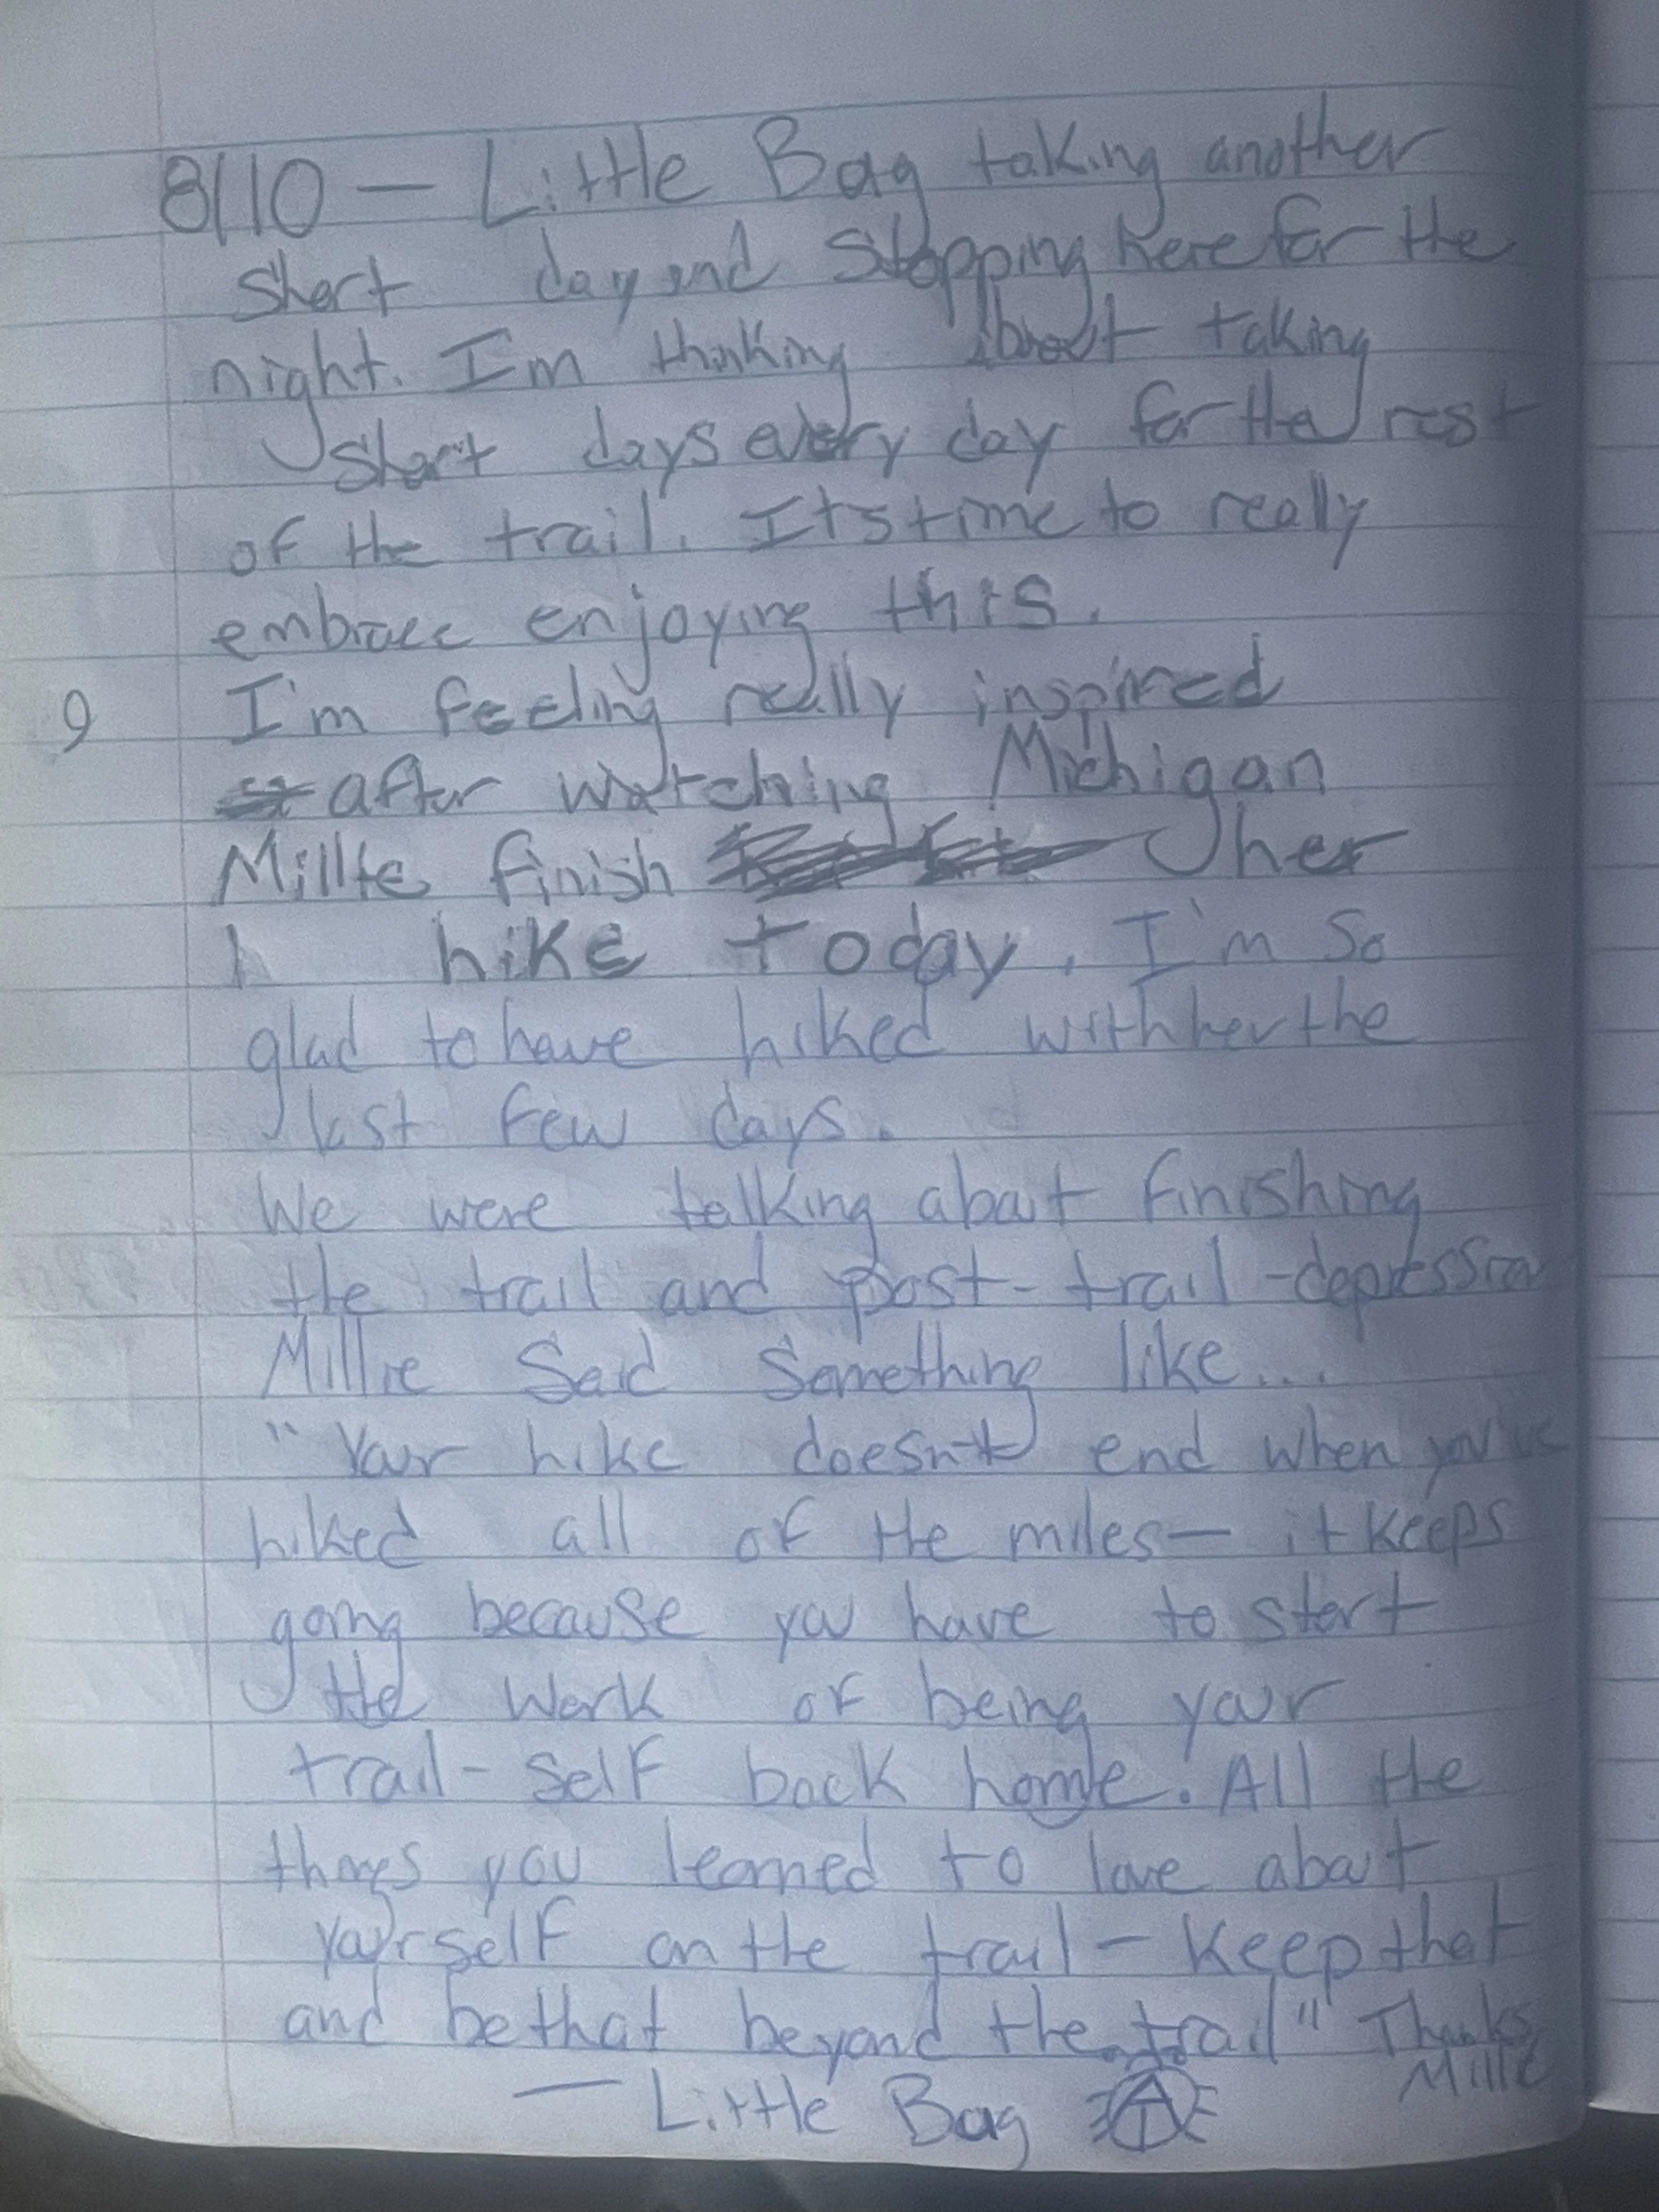 8/10 — Little Bag taking another
short day and stopping here for the
night. I'm thinking about taking
short days every day for the rest
of the trail. Its time to really
embrace enjoying this.
9 I'm feeling really inspired
after watching Michigan
Millie finish her
hike today. I'm so
glad to have hiked with her the
last few days.
We were talking about finishing
the trail and post-trail-depression
Millie said something like...
"Your hike doesn't end when you've
hiked all of the miles— it keeps
going because you have to start
the work of being your
trail-self back home. All the
things you learned to love about
yourself on the trail — keep that
and be that beyond the trail" Thanks
Millie
— Little Bag